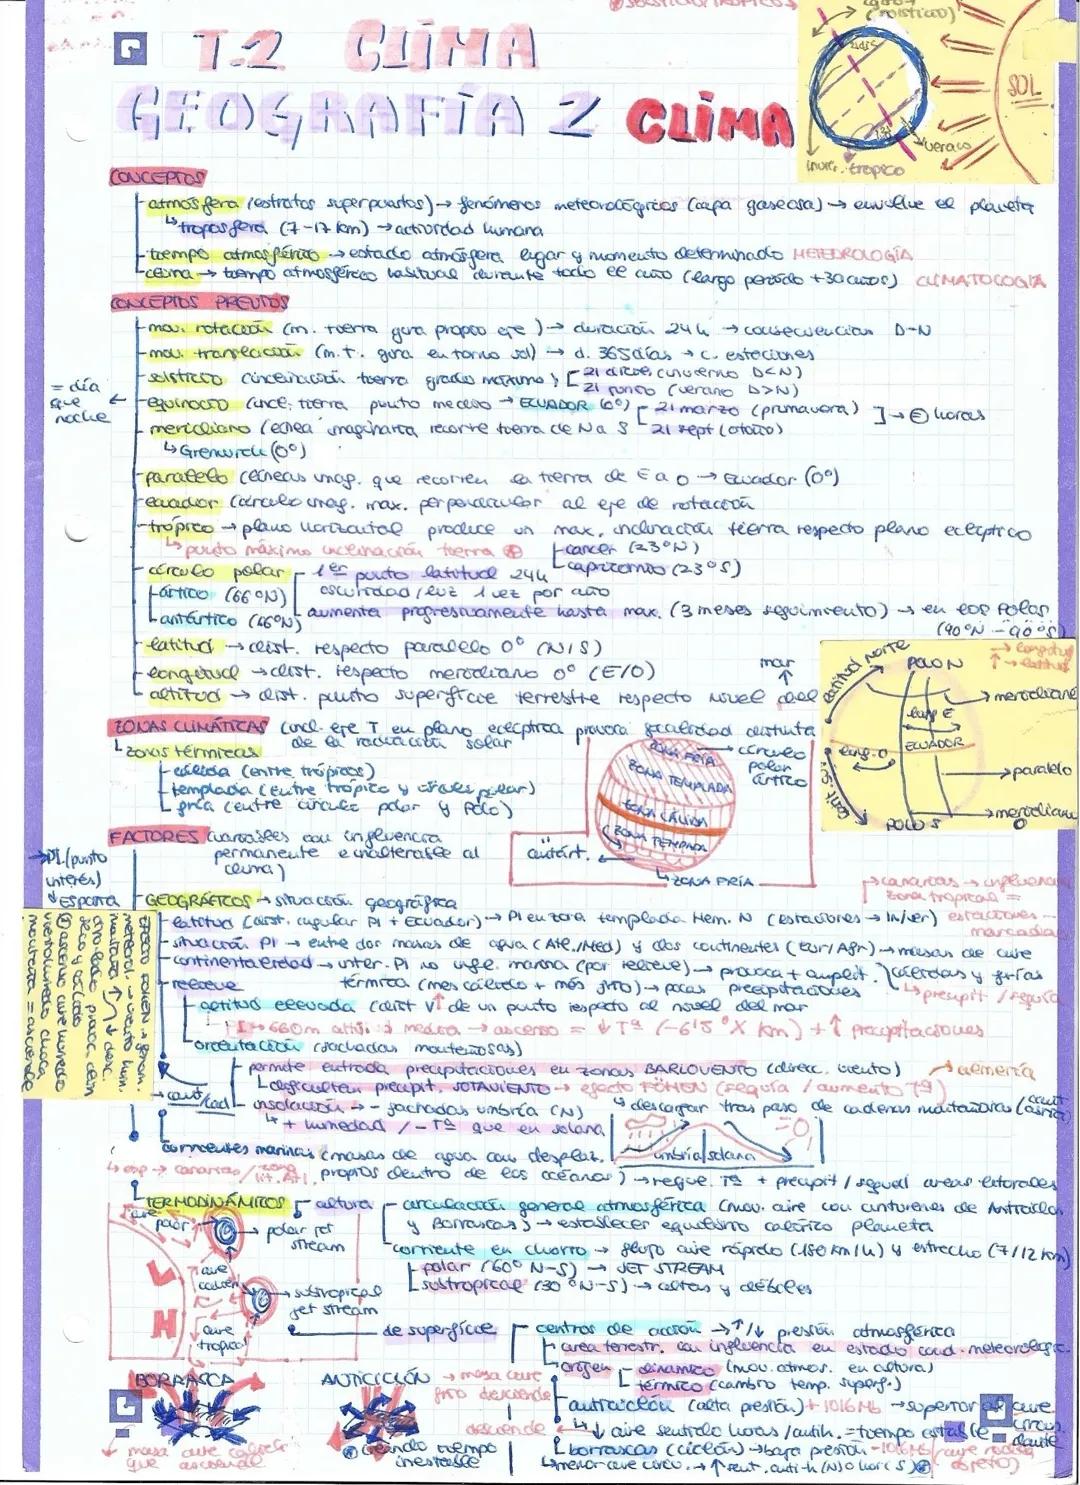 T.2 CLIMA
GEOGRAFÍA 2 CLIMA
SOL
verano
trópico
CONCEPTOS
atmosfera (estratos superpuestos) → fenómenos meteorológicos (capa gaseosa) → envuelve el planeta
↳ troposfera (7-17 km) → actividad humana
tiempo atmosférico → estado atmósfera lugar y momento determinado METEOROLOGÍA
clima → tiempo atmosférico habitual durante todo el año (largo período +30 años) CLIMATOLOGÍA
CONCEPTOS PREVIOS
mov. rotación (m. tierra gira propio eje) → duración 24 h → consecuencias D-N
mov. translación (m.t. gira en torno sol) → d. 365 días → c. estaciones
solsticio (inclinación tierra grado máximo) [ 21 dicie (invierno D<N)
21 junio (verano D>N)
= día que noche ←
equinoccio (incl. tierra punto medio → ECUADOR (0°) [ 21 marzo (primavera) ] → = horas
21 sept (otoño)
meridiano (línea imaginaria recorre tierra de N a S
↳ Grenwich (0°)
paralelo (líneas imag. que recorren la tierra de E a O → Ecuador (0°)
ecuador (círculo imag. max. perpendicular al eje de rotación
trópico → plano horizontal produce un max. inclinación tierra respecto plano eclíptico
↳ punto máximo inclinación tierra
cancer (23°N)
capricornio (23°S)
círculo polar
1er punto latitud 24h
oscuridad/luz 1 vez por año
ártico (66°N)
antártico (66°N)
aumenta progresivamente hasta max. (3 meses seguimiento) → en los Polos
(90°N - 90°S)
latitud → dist. respecto paralelo 0° (N/S)
longitud → dist. respecto meridiano 0° (E/O)
altitud → dist. punto superficie terrestre respecto nivel del mar
latitud NORTE
POLO N
→ longitud
↑ → latitud
→ meridiano
long E
ECUADOR
long. O
→ paralelo
POLO S
→ meridiano 0
ZONAS CLIMÁTICAS (incl. eje T en plano eclíptica provoca focalidad distinta
de la radiación solar
↳ zonas térmicas
cálida (entre trópicos)
templada (entre trópico y círculo polar)
fría (entre círculo polar y Polo)
ZONA FRÍA
→ círculo polar ártico
ZONA TEMPLADA
ZONA CÁLIDA
ZONA TEMPLADA
antárt. ←
↳ ZONA FRÍA
FACTORES (variables con influencia
permanente e inalterable al
clima)
→ PI (punto interés)
↓ España
GEOGRÁFICOS → situación geográfica
→ canarias → influencia
zona tropical =
estaciones - marcadas
latitud (dist. angular PI + Ecuador) → PI en zona templada Hem. N (estaciones → In/ver)
situación PI → entre dos masas de agua (Atl./Med) y dos continentes (Eur/Afr) → masas de aire
continentalidad → inter. PI no infl. marina (por relieve) → provoca + amplit. cálidas y frías
térmica (mes cálido + mes frío) → pocas precipitaciones ↳ precipit / sequía
relieve
altitud elevada (dist v↑ de un punto respecto al nivel del mar
PI → 660m altitud media → ascenso = ↓Tª (-6'5° X km) + ↑ precipitaciones
orientación (fachadas montañosas)
permite entrada precipitaciones en zonas BARLOVENTO (direcc. viento)
→ almería
dificultan precipit. SOTAVIENTO → efecto FÖHEN (sequía / aumento Tª)
↳ descargar tras paso de cadenas montañosas
insolación → - fachadas umbría (N)
↳ + humedad / -Tª que en solana
umbría/solana
EFECTO FÖHEN
corrientes marinas (masas de agua con desplaz.
propios dentro de los océanos) → regul. Tª + precipit / sequd areas litorales
↳ esp → canarias /
TERMODINÁMICOS
altura
circulación general atmosférica (mov. aire con cinturones de Anticiclón
y Borrascas) → establecer equilibrio calórico planeta
corriente en chorro → flujo aire rápido (180 km/h) y estrecho (7/12 km)
polar (60° N-S) → JET STREAM
subtropical (30° N-S) → altos y débiles
aire polar
→ polar jet stream
L
aire cálido
→ subtropical jet stream
H
aire tropical
de superficie
centros de acción → ↑/↓ presión atmosférica
area terrestr. con influencia en estado cond. meteorologic.
origen
dinámico (mov. atmos. en altura)
térmico (cambio temp. superf.)
anticiclón (alta presión) + 1016 Mb → superior al aire circundante
↳ ↓ aire sentido horas / antih. = tiempo estable
borrascas (ciclón) → baja presión -1016 Mb
BORRASCA
masa aire cálido que asciende
ANTICICLÓN → masa aire
frío desciende
desciende
creando tiempo
inestable